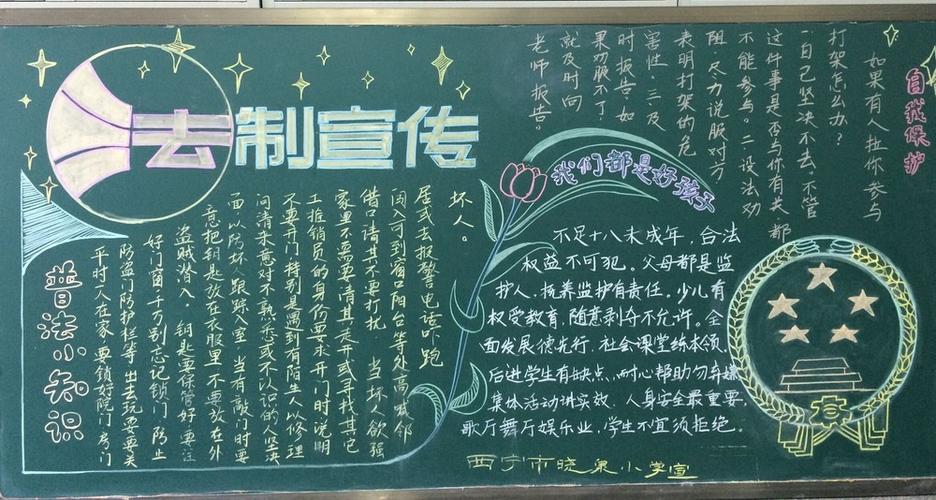 法制宣传
普法小知识
平时一人在家,要锁好院门、房门
防盗门防护栏等 出去玩要要关
好门窗千万别忘记锁门 防止
盗贼潜入 钥匙要保管好 要注
意把钥匙放在衣服里 不要放在外
面以防坏人跟踪入室 当有敲门时要
问清来意对不熟悉或不认识的人坚决
不要开门,特别是遇到有陌生人以修理
工推销员的身份要求开门时说明
家里不需要 请其走开或寻找其它
借口请其不要打扰 当坏人欲强
闯入可到窗口阳台等处高喊邻
居或去报警电话吓跑
坏人。
自我保护
如果有人拉你参与
打架怎么办?
一自己坚决不去,不管
这件事是否与你有关,都
不能参与。二、设法劝
阻,尽力说服对方
表明打架的危
害性。三、及
时报告,如
果劝服不了
就及时向
老师报告。
我们都是好孩子
不足十八未成年,合法
权益不可犯。父母都是监
护人,抚养监护有责任。少儿有
权受教育,随意剥夺不允许。全
面发展德先行,社会课堂练本领。
后进学生有缺点,耐心帮助勿弃嫌
集体活动讲实效,人身安全最重要。
歌厅舞厅娱乐业,学生不宜须拒绝。
西宁市晓泉小学宣